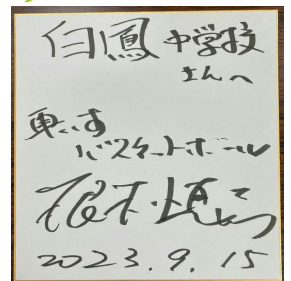 白鳳中学校
さんへ
車いす
バスケットボール
2023.9.15